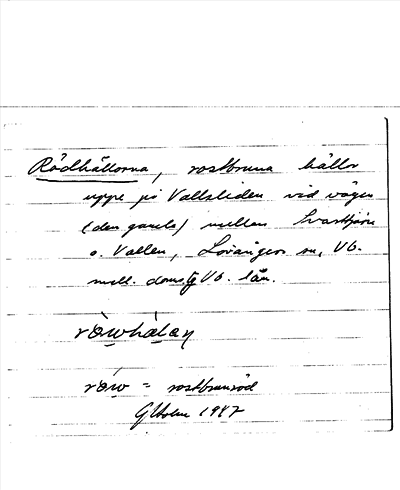 Rödhällorna, rostbruna hällor
uppe på Vallsliden vid vägen
(den gamla) mellan Svarttjärn
o. Vallen, Lövångers sn, Vb.
mell. doms. Vb. län.
ròwhàlan
röw = rostbrunröd
G Holm 1947